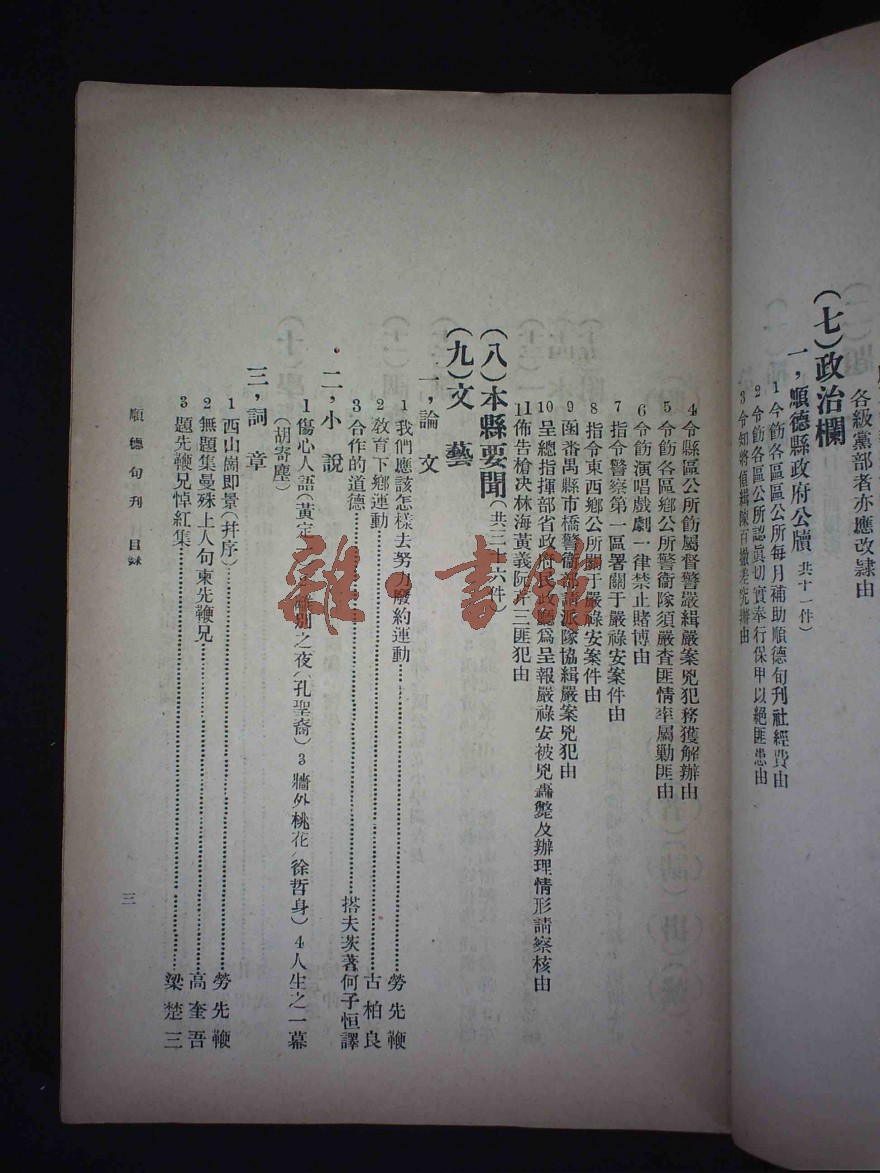 各級黨部者亦應改隸由
(七)政治欄
一，順德縣政府公牘 共十一件)
1 令飭各區區公所每月補助順德旬刊社經費由
2 令飭各區公所認眞切實奉行保甲以絕匪患由
3 令知將偵緝陳百撤差究辦由
4 令縣區公所飭屬督警嚴緝嚴案兇犯務獲解辦由
5 令飭各區鄉公所警衞隊須嚴査匪情率屬勦匪由
6 令飭演唱戲劇一律禁止賭博由
7 指令警察第一區署關于嚴祿安案件由
8 指令東西鄉公所關于嚴祿安案件由
9 函番禺縣市橋警衞部請派隊協緝嚴案兇犯由
10 呈總指揮部省政府民政廳爲呈報嚴祿安被兇轟斃及辦理情形請察核由
11 佈告槍决林海黃義阮芹三匪犯由
(八)本縣要聞(共二十六件
(九)文藝
一，論文
1 我們應該怎樣去努力廢約運動……勞先鞭
2 敎育下鄉運動……古柏良
3 合作的道德……搭夫茨著何子恒譯
二，小說
1 傷心人語(黃定 別之夜(孔聖裔) 3 牆外桃花(徐哲身) 4 人生之一幕
(胡寄塵)
三，詞章
1 西山崗即景(幷序)……勞先鞭
2 無題集曼殊上人句柬先鞭兄……高奎吾
3 題先鞭兄悼紅集……梁楚三
順德旬刊 目錄
三
雜·書館